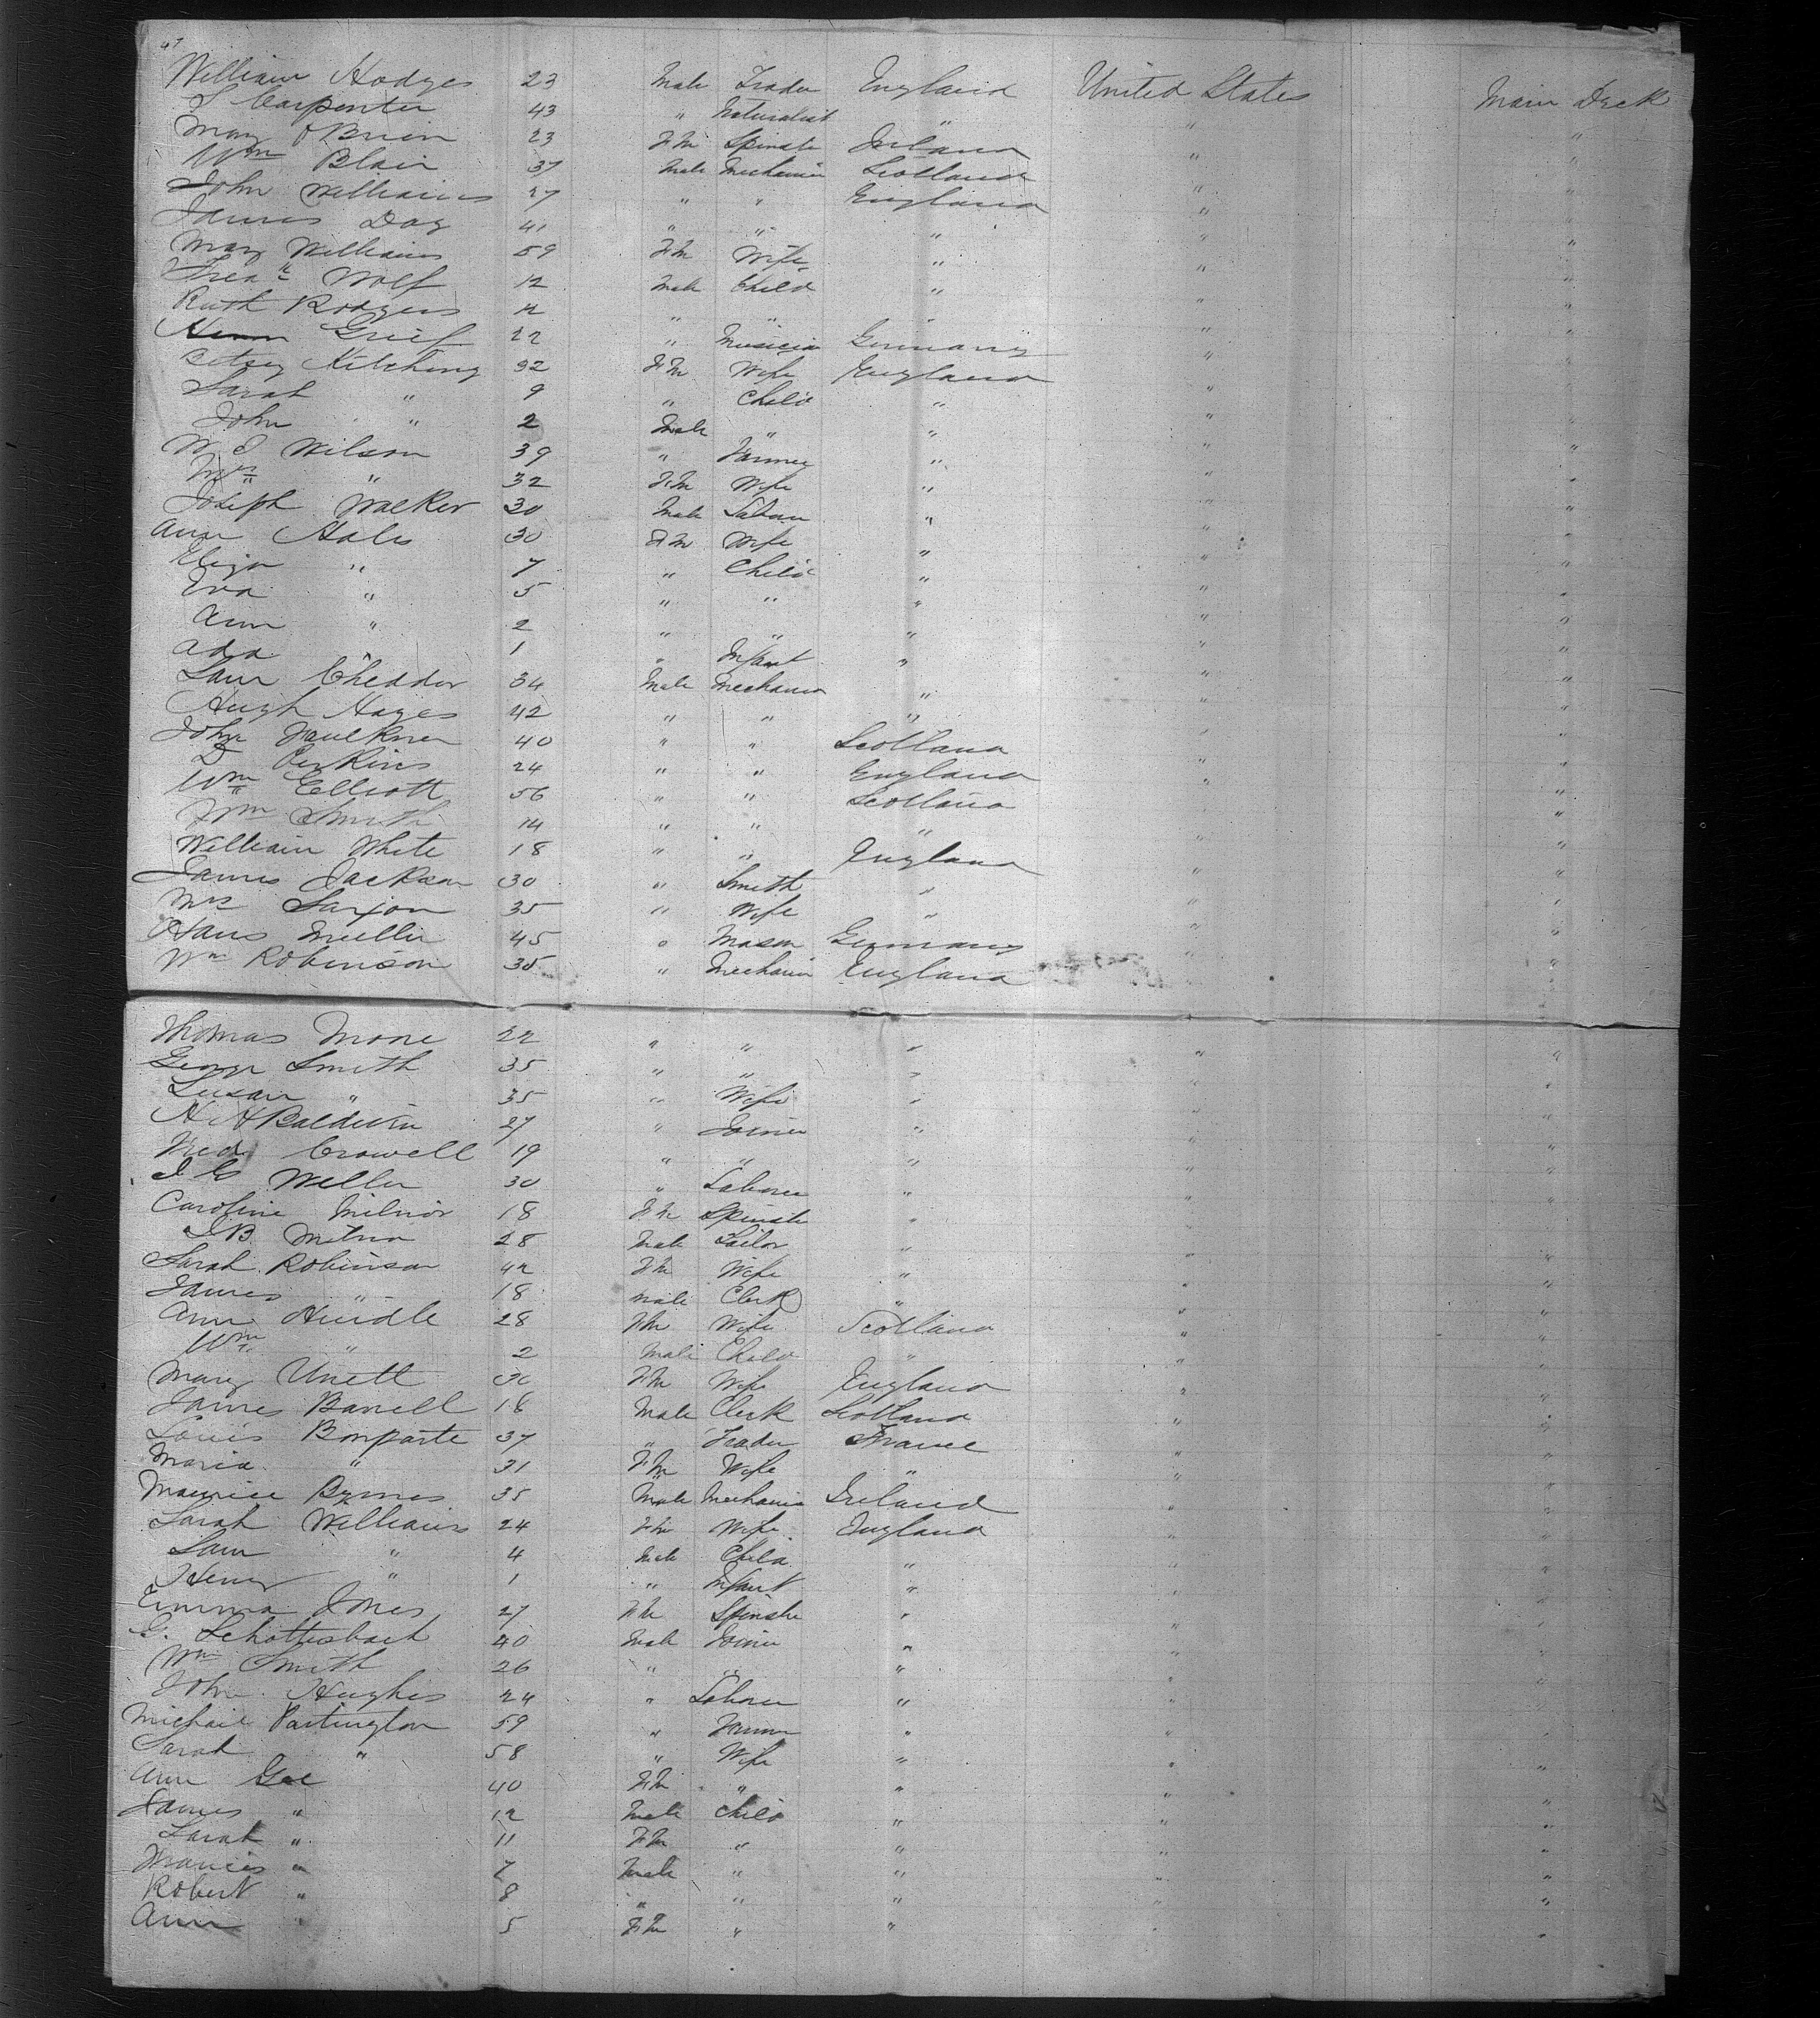 47
William Hodges 23 Male Trader England United States Main Deck
S Carpenter 43 " Naturalist " " "
Mary O'Brien 23 Fm Spinster Ireland " "
Wm Blair 37 Male Mechanic Scotland " "
John Williams 27 " " England " "
James Day 41 " " " " "
Mary Williams 59 Fm Wife " " "
Fredk Wolf 12 Male Child " " "
Ruth Rodgers 12 " " " " "
Grief 22 " Musician Germany " "
Betsey Kitching 32 Fm Wife England " "
Sarah " 9 " Child " " "
John " 2 Male " " " "
W J Wilson 39 " Farmer " " "
Mrs " 32 Fm Wife " " "
Joseph Walker 30 Male Labour " " "
Ann Hales 30 Fm Wife " " "
Eliza " 7 " Child " " "
Eva " 5 " " " " "
Ann " 2 " " " " "
Ada " 1 " Infant " " "
Sam Cheddor 34 Male Mechanic " " "
Hugh Hayes 42 " " " " "
John Faulkner 40 " " Scotland " "
D Perkins 24 " " England " "
Wm Elliott 56 " " Scotland " "
Wm Smith 14 " " " " "
William White 18 " " England " "
James Jackson 30 " Smith " " "
Mrs Saxon 35 " Wife " " "
Hans Muller 45 " Mason Germany " "
Wm Robinson 35 " Mechanic England " "
Thomas Moore 22 " " " " "
George Smith 35 " " " " "
Susan " 35 " Wife " " "
N H Baldwin 27 " Joiner " " "
Fred Crowell 19 " " " " "
J G Weller 30 " Laborer " " "
Caroline Milnor 18 Fm Spinster " " "
J B Milnor 28 Male Tailor " " "
Sarah Robinson 42 Fm Wife " " "
James " 18 Male Clerk " " "
Ann Hindle 28 Fm Wife Scotland " "
Wm " 2 Male Child " " "
Mary Unett 30 Fm Wife England " "
James Barrell 18 Male Clerk Scotland " "
Louis Bonparte 37 " Trader France " "
Maria " 31 Fm Wife " " "
Maurice Byrnes 35 Male Mechanic Ireland " "
Sarah Williams 24 Fm Wife England " "
Sam " 4 Male Child " " "
Henry " 1 " Infant " " "
Emma Jones 27 Fm Spinster " " "
G. Schottesbach 40 Male Joiner " " "
Wm Smith 26 " " " " "
John Hughes 24 " Laborer " " "
Michail Partington 59 " Farmer " " "
Sarah " 58 " Wife " " "
Ann Gee 40 Fm " " " "
James " 12 Male Child " " "
Sarah " 11 Fm " " " "
Francis " 7 Male " " " "
Robert " 8 " " " " "
Ann " 5 Fm " " " "